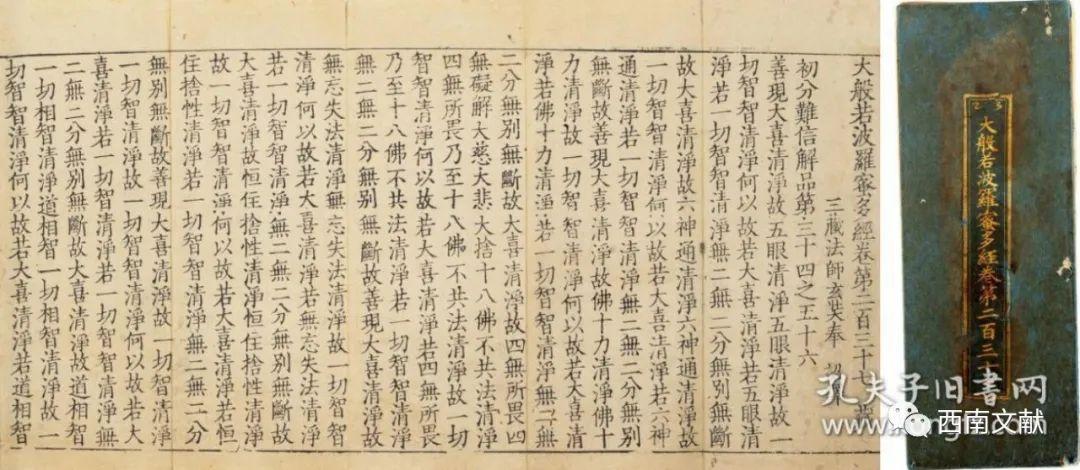 大般若波羅蜜多經卷第二百三十七
三藏法師玄奘奉 詔
初分難信解品第三十四之五十六
善現大喜清淨故五眼清淨五眼清淨故一
切智智清淨何以故若大喜清淨若五眼清
淨若一切智智清淨無二無二分無別無斷
故大喜清淨故六神通清淨六神通清淨故
一切智智清淨何以故若大喜清淨若六神
通清淨若一切智智清淨無二無二分無別
無斷故善現大喜清淨故佛十力清淨佛十
力清淨故一切智智清淨何以故若大喜清
淨若佛十力清淨若一切智智清淨無二無
二分無別無斷故大喜清淨故四無所畏四
無礙解大慈大悲大捨十八佛不共法清淨
四無所畏乃至十八佛不共法清淨故一切
智智清淨何以故若大喜清淨若四無所畏
乃至十八佛不共法清淨若一切智智清淨
無二無二分無別無斷故善現大喜清淨故
無忘失法清淨無忘失法清淨故一切智智
清淨何以故若大喜清淨若無忘失法清淨
若一切智智清淨無二無二分無別無斷故
大喜清淨故恒住捨性清淨恒住捨性清淨
故一切智智清淨何以故若大喜清淨若恒
住捨性清淨若一切智智清淨無二無二分
無別無斷故善現大喜清淨故一切智清淨
一切智清淨故一切智智清淨何以故若大
喜清淨若一切智清淨若一切智智清淨無
二無二分無別無斷故大喜清淨故道相智
一切相智清淨道相智一切相智清淨故一
切智智清淨何以故若大喜清淨若道相智
2 3
大般若波羅蜜多經卷第二百三十
孔夫子旧书网
西南文献